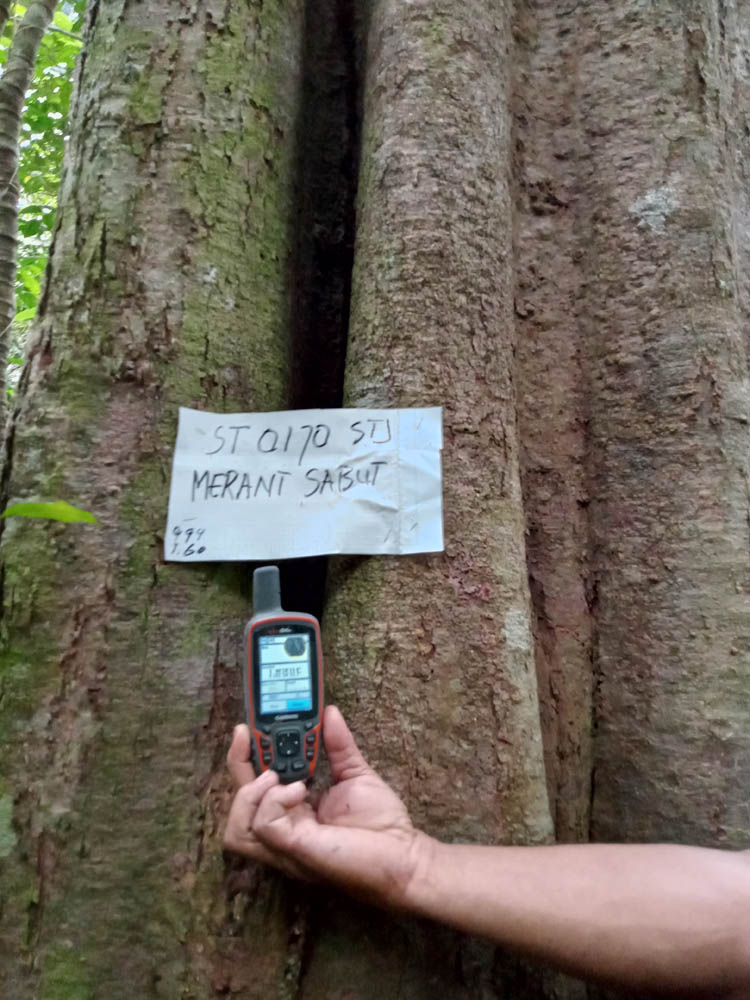 ST 0170 STJ
MERANT SABUT
994
1.60
GARMIN